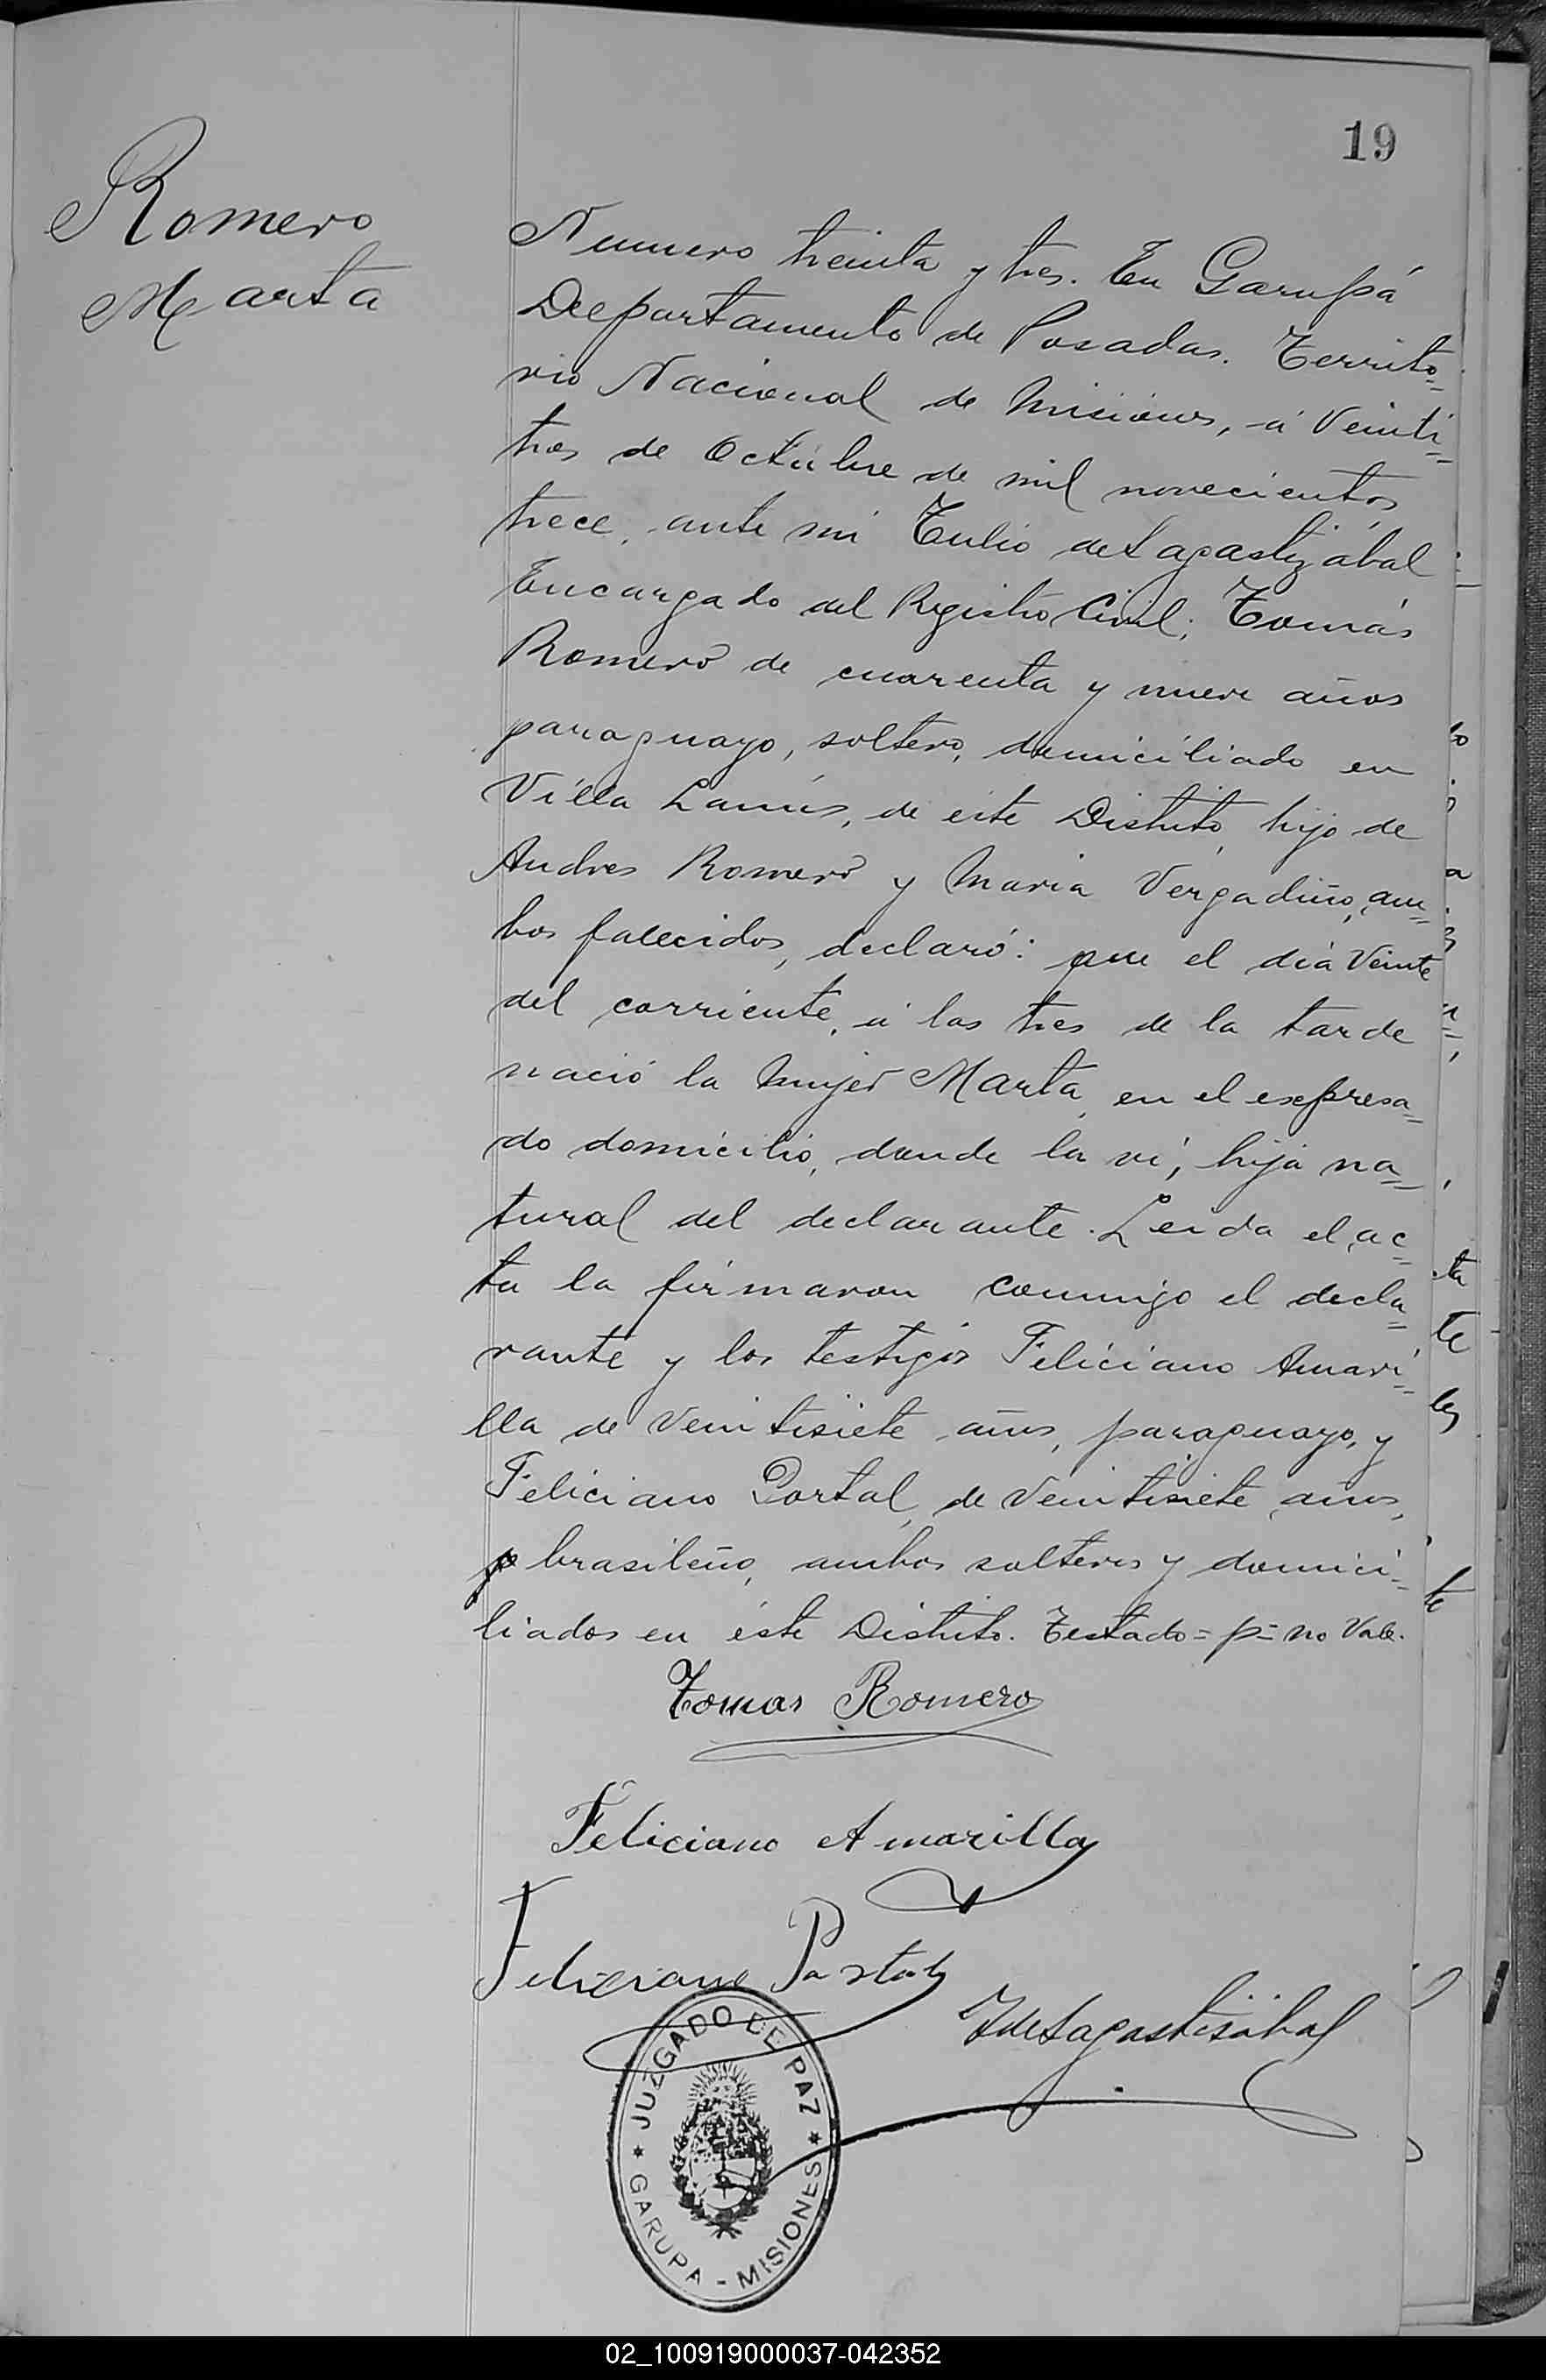 19
Romero
Marta
Numero treinta y tres. En Garupá
Departamento de Posadas. Territo=
rio Nacional de Misiones, á Veinti=
tres de Octubre de mil novecientos
trece, ante mi Tulio de Lagastizábal
Encargado del Registro Civil; Tomás
Romero de cuarenta y nueve años
paraguayo, soltero, domiciliado en
Villa Lanús, de este Distrito, hijo de
Andres Romero y Maria Vergadiño, am=
bos falecidos, declaró: que el dia Veinte
del corriente, á las tres de la tarde
nació la mujer Marta, en el expresa=
do domicilio, donde la vi, hija na=
tural del declarante. Leida el ac=
ta la firmaron conmigo el decla=
rante y los testigos Feliciano Amari=
lla de Veintisiete años, paraguayo, y
Feliciano Portal, de Veintisiete años,
p brasileño, ambos solteros y domici=
liados en éste Distrito. Testado=p=no Vale.
Tomas Romero
Feliciano Amarilla
Feliciano Portal
TdeLagastizábal
JUZGADO DE PAZ
GARUPA - MISIONES
02_100919000037-042352